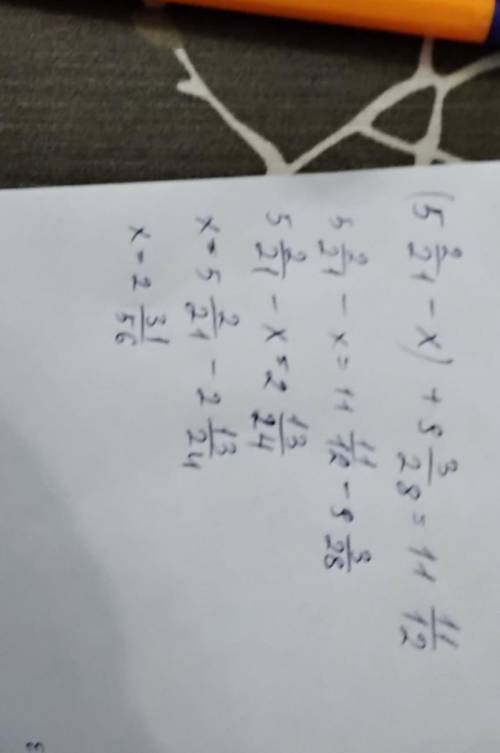 (5 2/21 - x) + 9 3/28 = 11 11/12
5 2/21 - x = 11 11/12 - 9 3/28
5 2/21 - x = 2 13/24
x = 5 2/21 - 2 13/24
x = 2 31/56